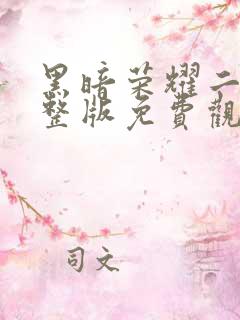 黑暗荣耀二
整版免費觀
司文